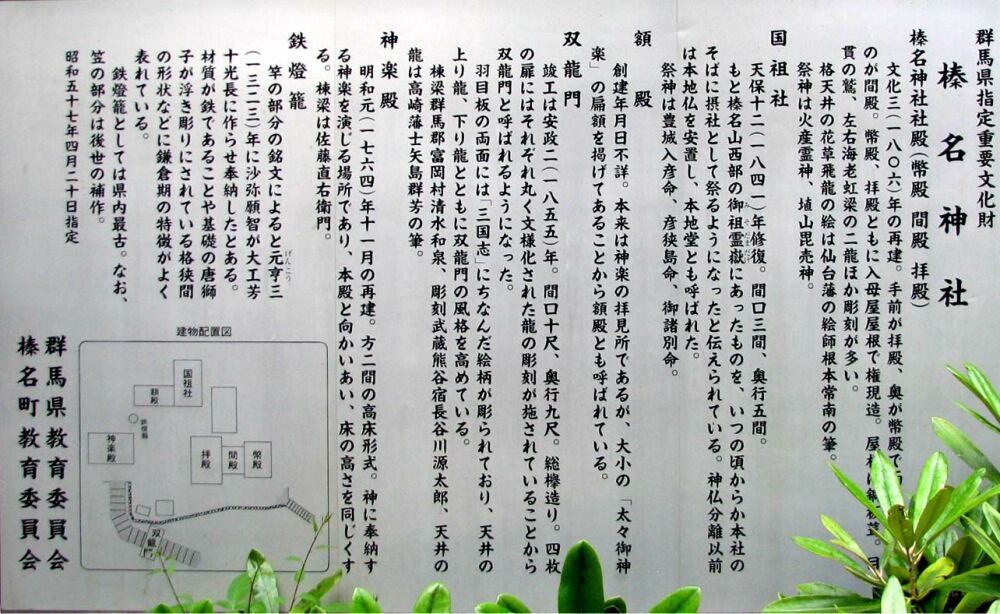 群馬県指定重要文化財
榛名神社
榛名神社社殿(幣殿 間殿 拝殿)
文化三(一八〇六)年の再建。手前が拝殿、奥が幣殿で
のが間殿。幣殿、拝殿ともに入母屋屋根で権現造。屋根は銅板葺。
貫の鷲、左右海老虹梁の二龍ほか彫刻が多い。
格天井の花草飛龍の絵は仙台藩の絵師根本常南の筆。
祭神は火産霊神、埴山毘売神。
国祖社
天保十二(一八四一)年修復。間口三間、奥行五間。
もと榛名山西部の御祖霊嶽にあったものを、いつの頃からか本社の
みそだまだけ
そばに摂社として祭るようになったと伝えられている。神仏分離以前
は本地仏を安置し、本地堂とも呼ばれた。
祭神は豊城入彦命、彦狭島命、御諸別命。
額殿
創建年月日不詳。本来は神楽の拝見所であるが、大小の「太々御神
楽」の扁額を掲げてあることから額殿とも呼ばれている。
双龍門
竣工は安政二(一八五五)年。間口十尺、奥行九尺。総欅造り。四枚
の扉にはそれぞれ丸く文様化された龍の彫刻が施されていることから
双龍門と呼ばれるようになった。
羽目板の両面には「三国志」にちなんだ絵柄が彫られており、天井の
上り龍、下り龍とともに双龍門の風格を高めている。
棟梁群馬郡富岡村清水和泉、彫刻武蔵熊谷宿長谷川源太郎、天井の
龍は高崎藩士矢島群芳の筆。
神楽殿
明和元(一七六四)年十一月の再建。方二間の高床形式。神に奉納す
る神楽を演じる場所であり、本殿と向かいあい、床の高さを同じくす
る。棟梁は佐藤直右衛門。
鉄燈籠
竿の部分の銘文によると元亨三
げんこう
(一三二三)年に沙弥願智が大工芳
十光長に作らせ奉納したとある。
材質が鉄であることや基礎の唐獅
子が浮き彫りにされている格狭間
の形状などに鎌倉期の特徴がよく
表れている。
鉄燈籠としては県内最古。なお、
笠の部分は後世の補作。
昭和五十七年四月二十日指定
建物配置図
国祖社
額殿
鉄燈籠
神楽殿
拝殿
間殿
幣殿
双龍門
群馬県教育委員会
榛名町教育委員会